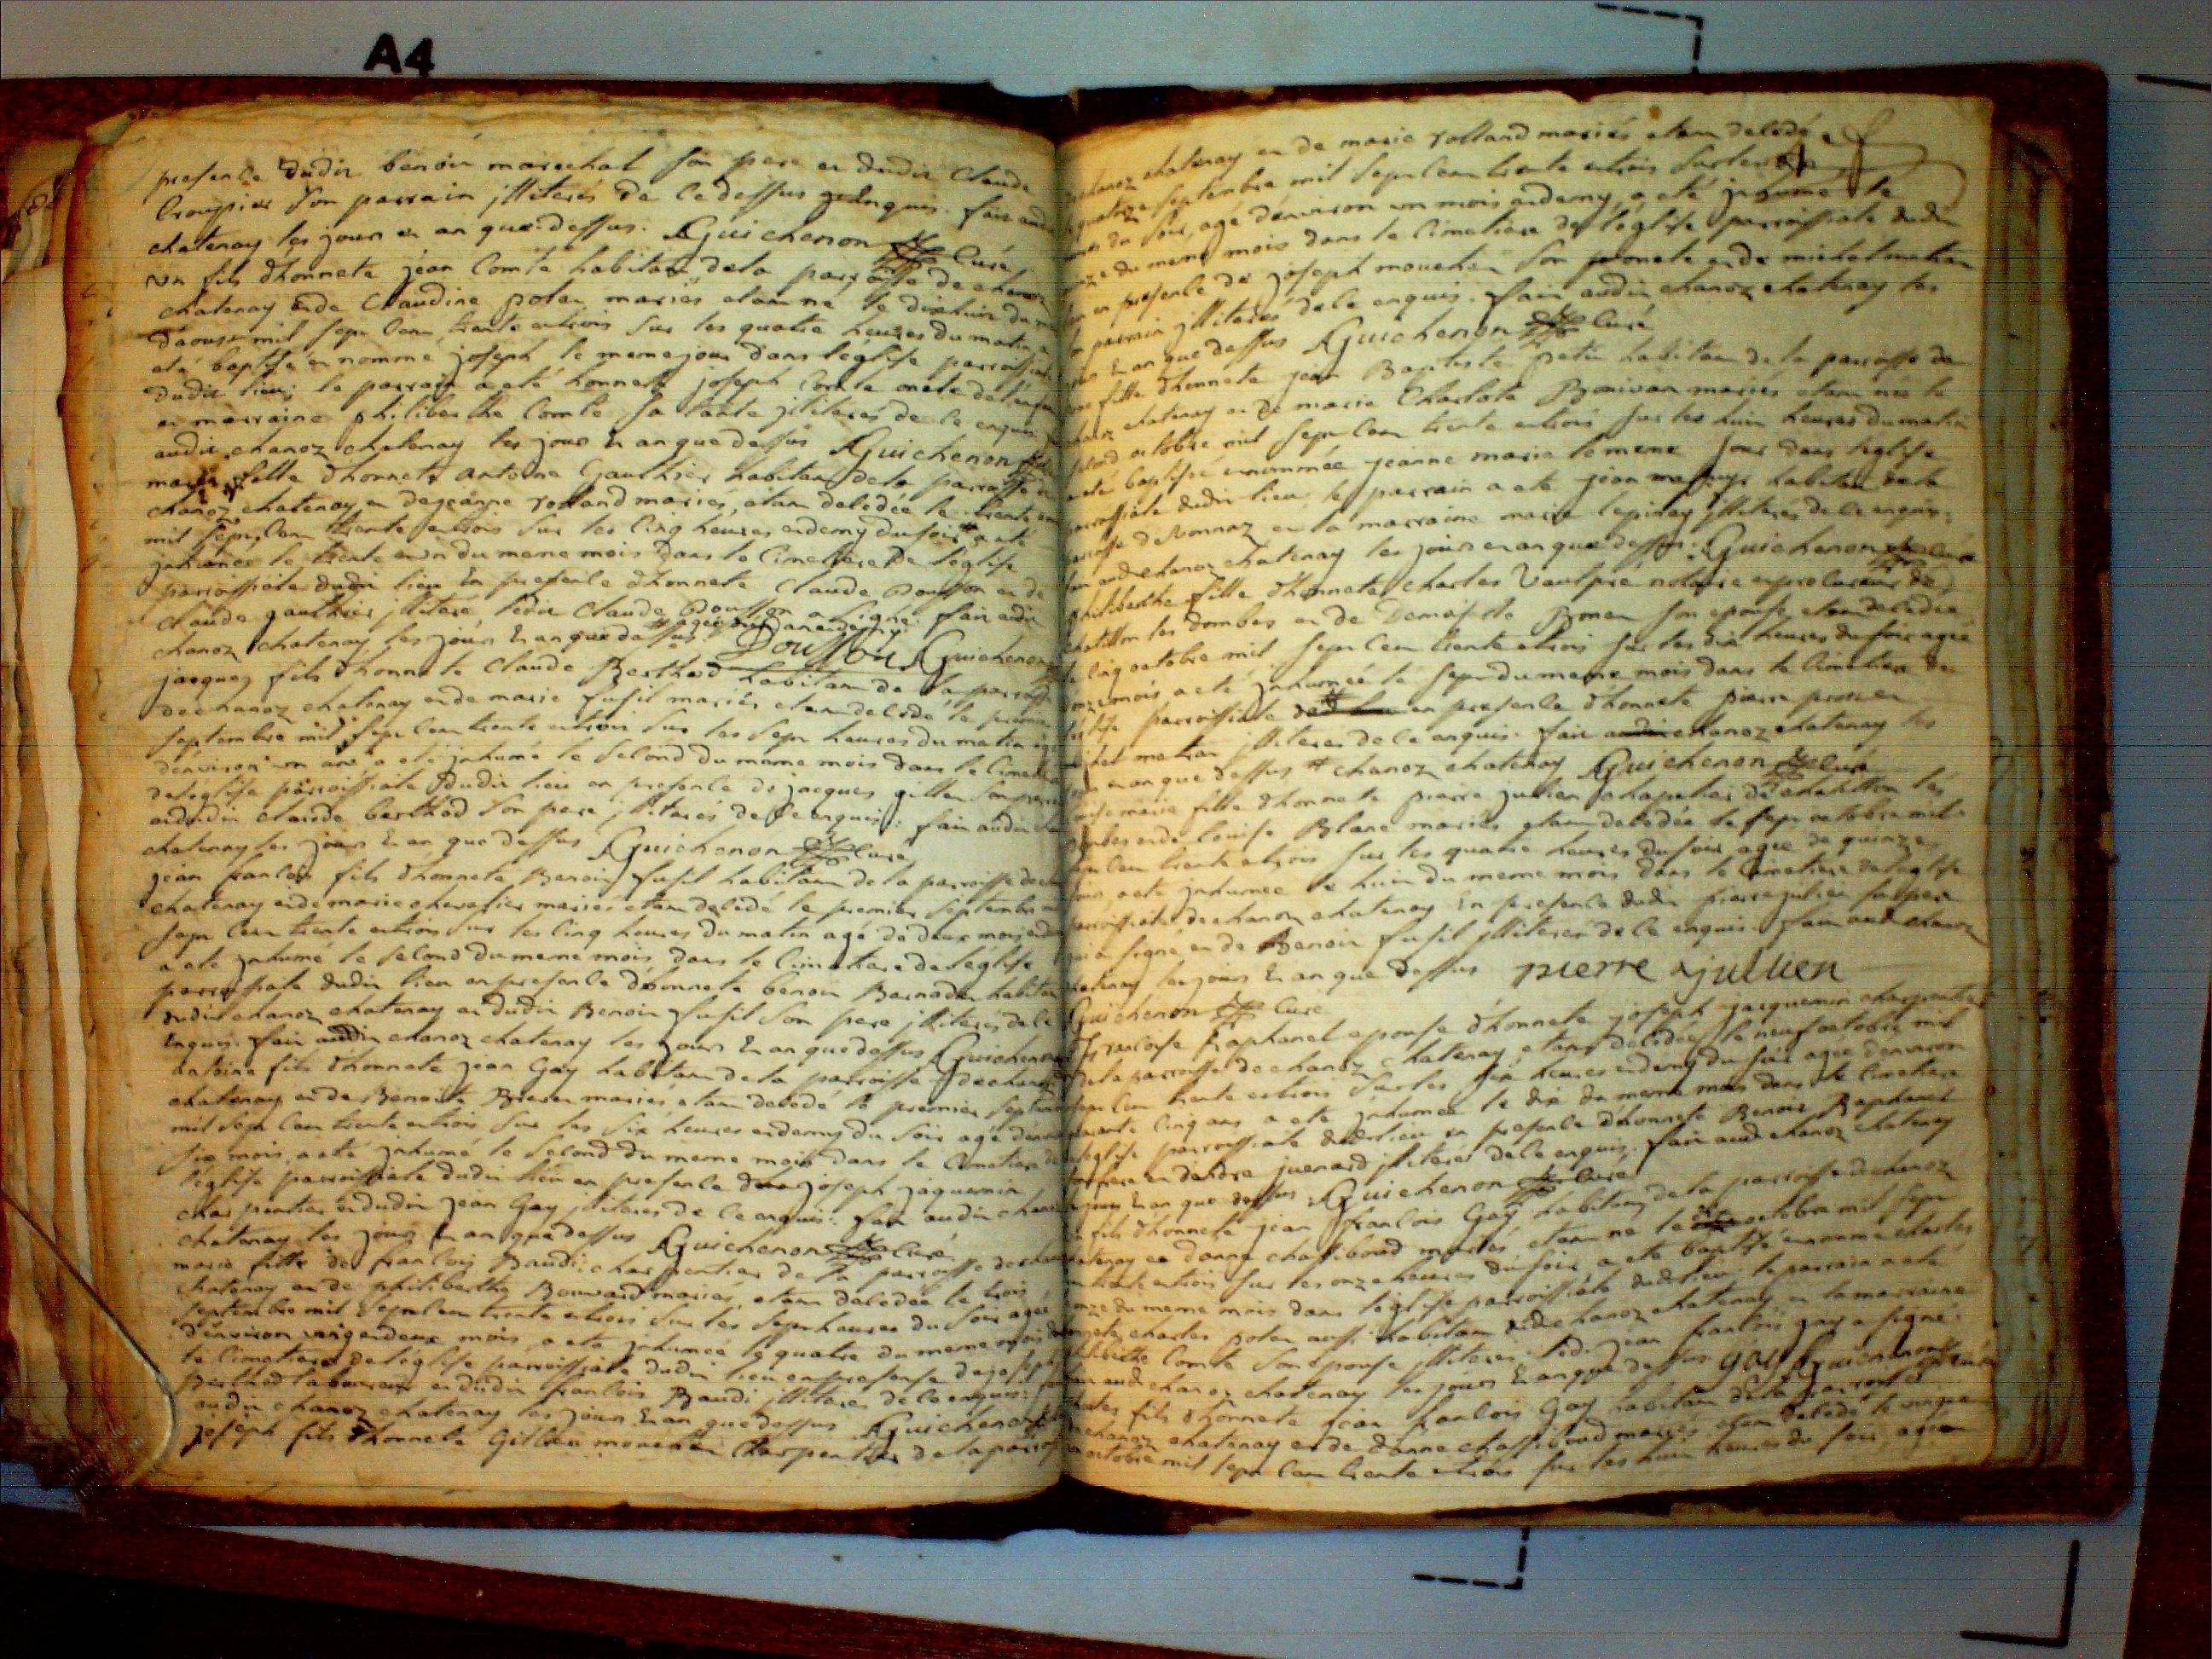 A4
presence dudit benoit marechal son pere et dudit Claude
Croupier son parrain illiterés de ce dessus enquis. fait audit
chatenay les jour et an que dessus. Guichenon curé
un fils d'honnete jean Comte habitant de la parroisse de chanoz
chatenay et de Claudine poten mariés etant né le dixhuit du mois
d'aoust mil sept cent trente et trois sur les quatre heures du matin a
eté baptisé et nommé joseph le meme jour dans l'église parroissiale
dudit lieu; le parrain a eté honnete joseph Comte oncle de l'enfant
et marraine philiberthe Comte sa tante illiterés de ce enquis
audit chanoz chatenay les jour et an que dessus Guichenon
marie fille d'honnete antoine Gauthier habitant de la parroisse de
chanoz chatenay et de jeanne rolland mariés, etant decedée le trente
mil sept cent trente et trois sur les cinq heures et demy du soir a eté
inhumée le trente et un du meme mois dans le Cimetiere de l'église
parroissiale dudit lieu en presence d'honnete Claude Dousson et de
Claude gauthier illiteré ledit Claude Dousson a signé fait audit
chanoz chatenay les jour et an que dessus Dousson Guichenon
jacques fils d'honnete Claude Berthod habitant de la parroisse
de chanoz chatenay et de marie fusil mariés etant decedé le premier
septembre mil sept cent trente et trois sur les sept heures du matin agé
d'environ un an a eté inhumé le second du meme mois dans le Cimetiere
de l'église parroissiale dudit lieu en presence de jacques gillet
et dudit claude berthod son pere illiterés de ce enquis: fait audit
chatenay les jour et an que dessus Guichenon curé
jean francois fils d'honnete Benoit fusil habitant de la parroisse de
chatenay et de marie chevalier mariés etant decedé le premier septembre
sept cent trente et trois sur les cinq heures du matin agé de deux mois
a eté inhumé le second du meme mois dans le Cimetiere de l'église
parroissiale dudit lieu en presence d'honnete benoit habitant
dudit chanoz chatenay et dudit Benoit fusil son pere illiterés de ce
enquis. fait audit chanoz chatenay les jour et an que dessus Guichenon
antoine fils d'honnete jean Gay habitant de la parroisse de chanoz
chatenay et de Benoite mariés etant decedé le premier septembre
mil sept cent trente et trois sur les six heures et demy du soir agé
six mois a eté inhumé le second du meme mois dans le Cimetiere de
l'église parroissiale dudit lieu en presence de joseph jaquemin
charpentier et dudit jean Gay illiterés de ce enquis: fait audit chanoz
chatenay les jour et an que dessus Guichenon curé
marie fille de francois Baudi charpentier de la parroisse de chanoz
chatenay et de philiberthe Bouvard mariés, etant decedée le trois
septembre mil sept cent trente et trois sur les sept heures du soir agée
d'environ vingt et deux mois a eté inhumée le quatre du meme mois dans
le Cimetiere de l'église parroissiale dudit lieu en presence de joseph
laboureur et dudit francois Baudi illiterés de ce enquis:
audit chanoz chatenay les jour et an que dessus Guichenon
joseph fils d'honnete Gillian charpentier de la parroisse
chanoz chatenay et de marie rolland mariés etant decedé
quatorze septembre mil sept cent trente et trois sur les
du soir, agé d'environ un mois et demy, a eté inhumé le
du meme mois dans le Cimetiere de l'église parroissiale dudit
lieu en presence de joseph son et de michel
parrain illiterés de ce enquis. fait audit chanoz chatenay les
jour et an que dessus Guichenon curé
une fille d'honnete jean Baptiste habitant de la parroisse de
chanoz chatenay et de marie Charlote mariés etant née le
second octobre mil sept cent trente et trois sur les huit heures du matin
a eté baptisé et nommée jeanne marie le meme jour dans l'église
parroissiale dudit lieu, le parrain a eté jean habitant de la
parroisse de vonnaz et la marraine marie l'epinay illiterés de ce enquis:
fait aud chanoz chatenay les jour et an que dessus. Guichenon curé
philiberthe fille d'honnete Charles Vautpré notaire et procureur de
chatillon les dombes et de Demoiselle son epouse, etant decedée
le cinq octobre mil sept cent trente et trois sur les dix heures du soir agée
onze mois a eté inhumée le sept du meme mois dans le Cimetiere de
l'église parroissiale en presence d'honnete pierre et
illiterés de ce enquis. fait chanoz chatenay les
jour et an que dessus # chanoz chatenay Guichenon curé
marie fille d'honnete pierre julien chapelier de chatillon les
dombes et de louise Blanc mariés etant decedée le sept octobre mil
sept cent trente et trois sur les quatre heures du soir agée de quinze
jours, a eté inhumée le huit du meme mois dans le Cimetiere de l'église
parroissiale de chanoz chatenay en presence dudit pierre julien son pere
qui a signé et de Benoit fusil illiterés de ce enquis. fait aud chanoz
chatenay les jour et an que dessus pierre jullien
Guichenon curé
francoise Raphanel epouse d'honnete joseph jacquemin charpentier
de la parroisse de chanoz chatenay, etant decedée le neuf octobre mil
sept cent trente et trois sur les six heures et demy du soir agée d'environ
cinq ans a eté inhumée le dix du meme mois dans le Cimetiere
de l'église parroissiale dudit lieu en presence d'honnete Benoit Raphanel
son pere et d'andre juenard illiterés de ce enquis. fait aud chanoz chatenay
les jour et an que dessus. Guichenon curé
un fils d'honnete jean francois Gay habitant de la parroisse de chanoz
chatenay et d'anne chassiboud mariés, etant né le octobre mil sept
cent trente et trois sur les onze heures du soir a eté baptisé et nommé charles
onze du meme mois dans l'église parroissiale dudit lieu: le parrain a eté
honnete charles poten aussi habitant dud chanoz chatenay et la marraine
philiberthe Comte son epouse illiterés. led. jean francois gay a signé.
fait aud chanoz chatenay les jour et an que dessus gay Guichenon curé
charles fils d'honnete jean francois Gay habitant de la parroisse
de chanoz chatenay et de d'anne chassiboud mariés etant decedé le vingt
octobre mil sept cent trente et trois sur les huit heures du soir, agé